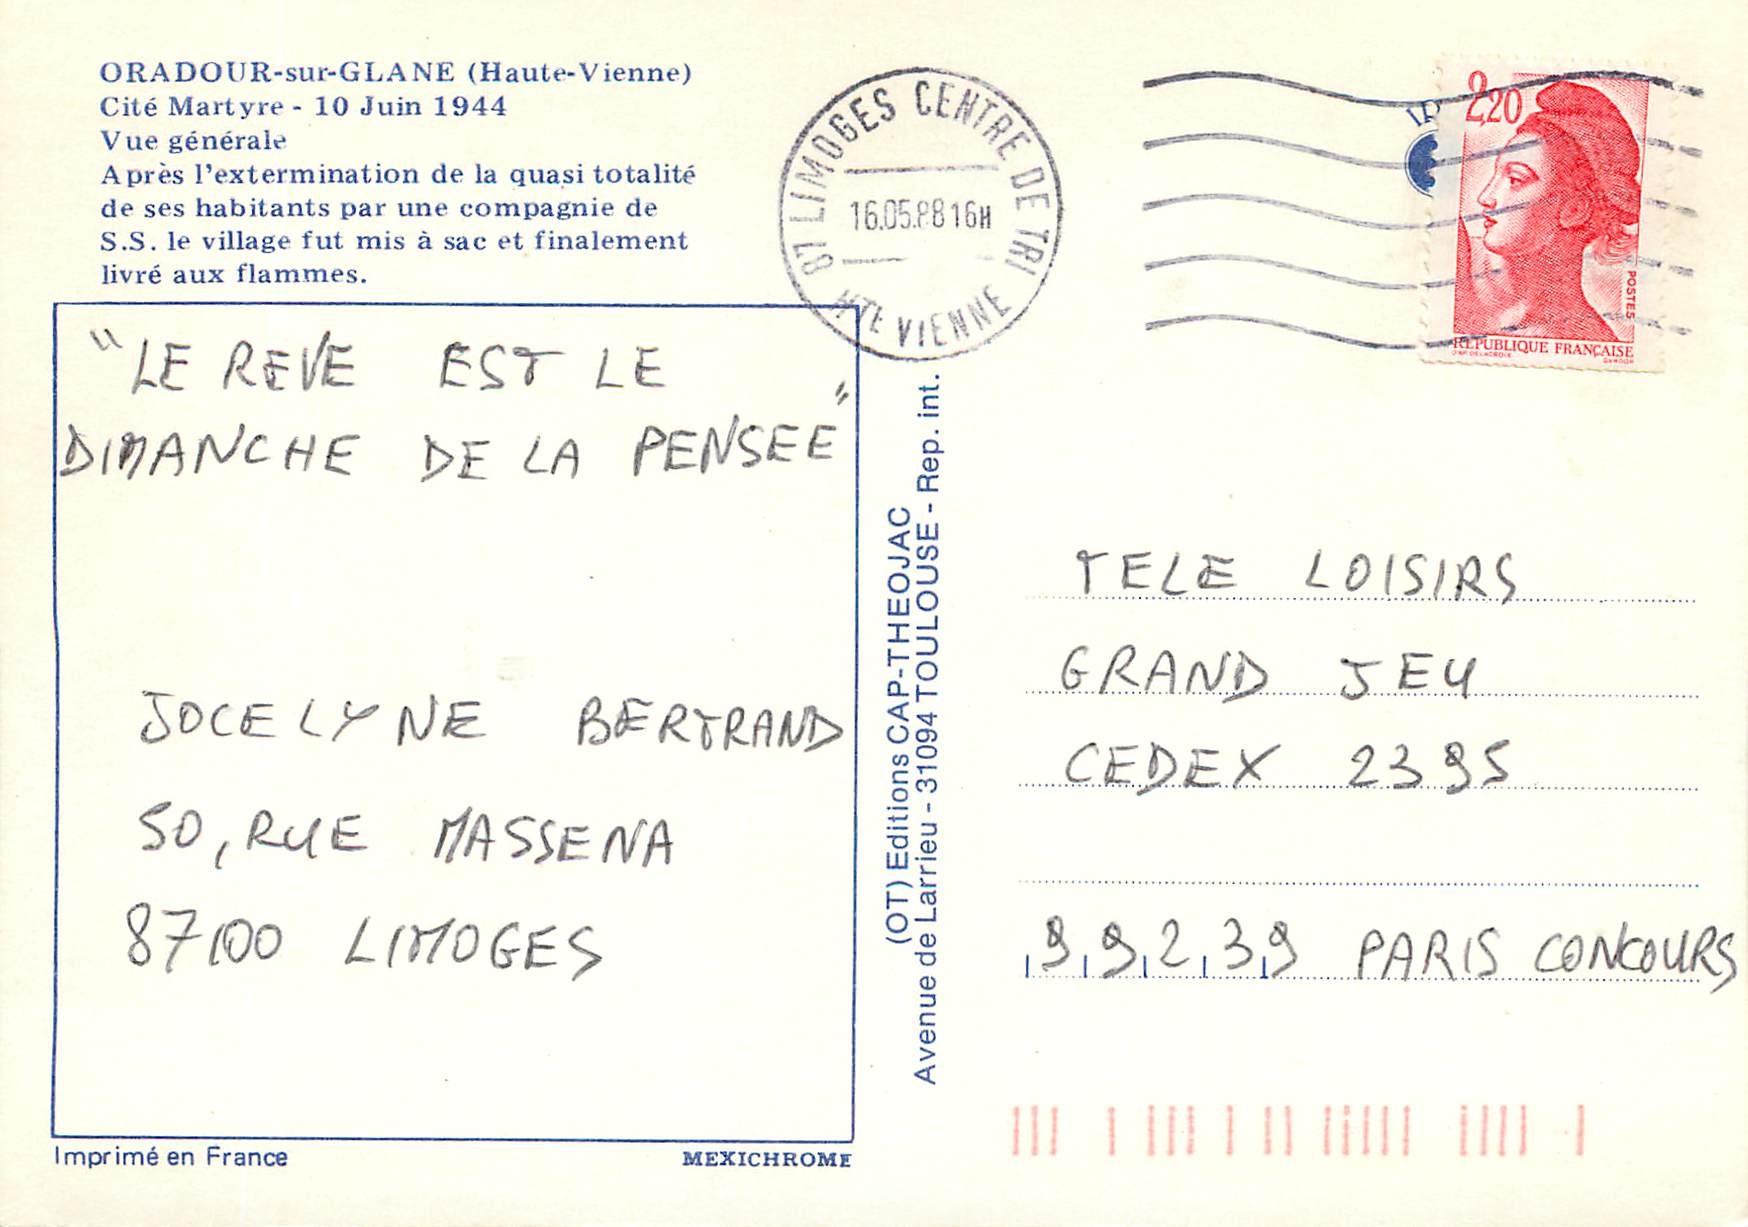 ORADOUR-sur-GLANE (Haute-Vienne)
Cité Martyre - 10 Juin 1944
Vue générale
Après l'extermination de la quasi totalité
de ses habitants par une compagnie de
S.S. le village fut mis à sac et finalement
livré aux flammes.
87 LIMOGES CENTRE DE TRI
16.05.88 16H
HTE VIENNE
2,20
POSTES
REPUBLIQUE FRANÇAISE
D'AP. DELACROIX
GANDON
"LE REVE EST LE
DIMANCHE DE LA PENSEE"
JOCELYNE BERTRAND
50, RUE MASSENA
87100 LIMOGES
(OT) Editions CAP-THEOJAC
Avenue de Larrieu - 31094 TOULOUSE - Rep. int.
TELE LOISIRS
GRAND JEU
CEDEX 2395
99239 PARIS CONCOURS
Imprimé en France
MEXICHROME